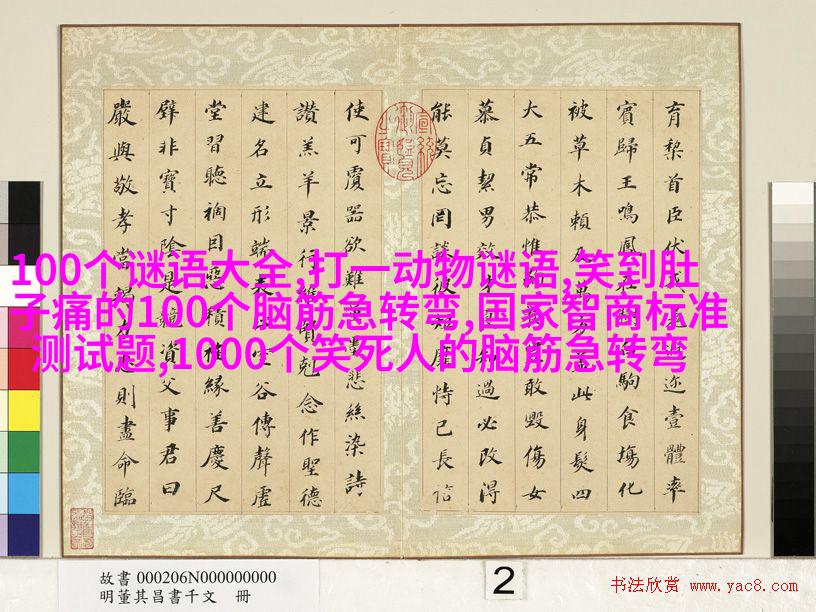 100个谜语大全,打一动物谜语,笑到肚
子痛的100个脑筋急转弯,国家智商标准
测试题,1000个笑死人的脑筋急转弯
育棃首臣伏戎羌迩壹體率
賓歸王鳴鳳在樹白駒食場化
被草木賴及萬方蓋此身髮四
大五常恭惟鞠養豈敢毀傷女
慕貞絜男效才良知過必改得
能莫忘罔談彼短靡恃己長信
使可覆器欲難量墨悲絲染詩
讚羔羊景行維賢剋念作聖德
建名立形端表正空谷傳聲虛
堂習聽禍因惡積福緣善慶尺
璧非寶寸陰是競資父事君曰
嚴與敬孝當竭力忠則盡命臨
故書 000206N000000000
明董其昌書千文 冊
2
书法欣赏 www.yac8.com